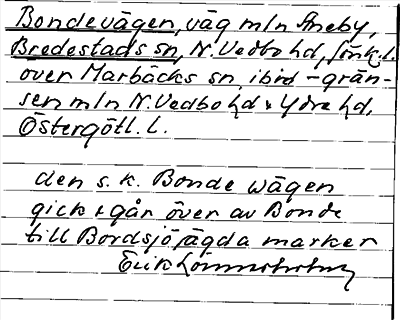 Bondevägen, väg mln Aneby,
Bredestads sn, N. Vedbo hd, Jönk. l.
över Marbäcks sn, ibid - grän-
sen mln N. Vedbo hd & Ydre hd,
Östergötl. l.
den s. k. Bonde wägen
gick & går över av Bonde
till Bordsjö ägda marker
Erik